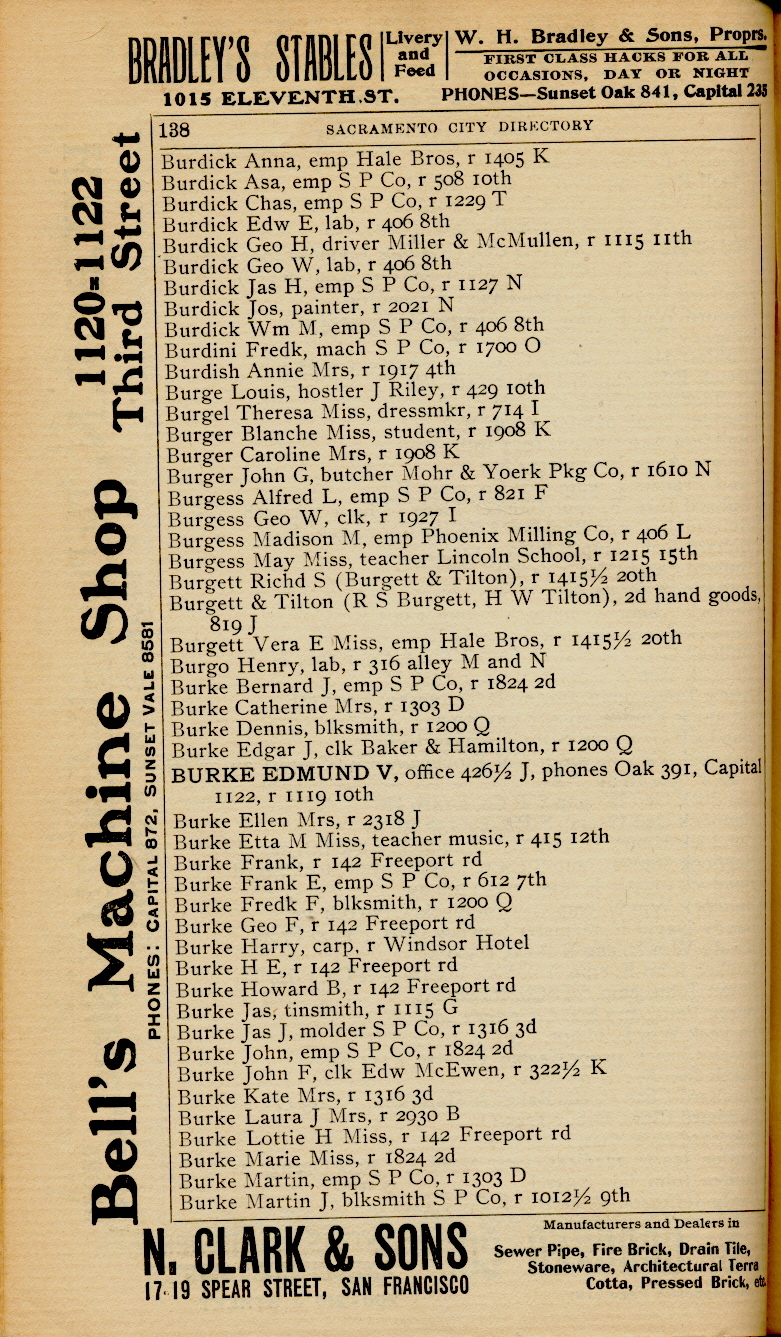 BRADLEY'S STABLES
Livery
and
Feed
W. H. Bradley & Sons, Proprs.
FIRST CLASS HACKS FOR ALL
OCCASIONS, DAY OR NIGHT
1015 ELEVENTH ST.
PHONES—Sunset Oak 841, Capital 235
138 SACRAMENTO CITY DIRECTORY
Burdick Anna, emp Hale Bros, r 1405 K
Burdick Asa, emp S P Co, r 508 10th
Burdick Chas, emp S P Co, r 1229 T
Burdick Edw E, lab, r 406 8th
Burdick Geo H, driver Miller & McMullen, r 1115 11th
Burdick Geo W, lab, r 406 8th
Burdick Jas H, emp S P Co, r 1127 N
Burdick Jos, painter, r 2021 N
Burdick Wm M, emp S P Co, r 406 8th
Burdini Fredk, mach S P Co, r 1700 O
Burdish Annie Mrs, r 1917 4th
Burge Louis, hostler J Riley, r 429 10th
Burgel Theresa Miss, dressmkr, r 714 I
Burger Blanche Miss, student, r 1908 K
Burger Caroline Mrs, r 1908 K
Burger John G, butcher Mohr & Yoerk Pkg Co, r 1610 N
Burgess Alfred L, emp S P Co, r 821 F
Burgess Geo W, clk, r 1927 I
Burgess Madison M, emp Phoenix Milling Co, r 406 L
Burgess May Miss, teacher Lincoln School, r 1215 15th
Burgett Richd S (Burgett & Tilton), r 1415½ 20th
Burgett & Tilton (R S Burgett, H W Tilton), 2d hand goods,
819 J
Burgett Vera E Miss, emp Hale Bros, r 1415½ 20th
Burgo Henry, lab, r 316 alley M and N
Burke Bernard J, emp S P Co, r 1824 2d
Burke Catherine Mrs, r 1303 D
Burke Dennis, blksmith, r 1200 Q
Burke Edgar J, clk Baker & Hamilton, r 1200 Q
BURKE EDMUND V, office 426½ J, phones Oak 391, Capital
1122, r 1119 10th
Burke Ellen Mrs, r 2318 J
Burke Etta M Miss, teacher music, r 415 12th
Burke Frank, r 142 Freeport rd
Burke Frank E, emp S P Co, r 612 7th
Burke Fredk F, blksmith, r 1200 Q
Burke Geo F, r 142 Freeport rd
Burke Harry, carp, r Windsor Hotel
Burke H E, r 142 Freeport rd
Burke Howard B, r 142 Freeport rd
Burke Jas, tinsmith, r 1115 G
Burke Jas J, molder S P Co, r 1316 3d
Burke John, emp S P Co, r 1824 2d
Burke John F, clk Edw McEwen, r 322½ K
Burke Kate Mrs, r 1316 3d
Burke Laura J Mrs, r 2930 B
Burke Lottie H Miss, r 142 Freeport rd
Burke Marie Miss, r 1824 2d
Burke Martin, emp S P Co, r 1303 D
Burke Martin J, blksmith S P Co, r 1012½ 9th
Bell's Machine Shop
1120-1122
Third Street
PHONES: CAPITAL 872, SUNSET VALE 8581
N. CLARK & SONS
17-19 SPEAR STREET, SAN FRANCISCO
Manufacturers and Dealers in
Sewer Pipe, Fire Brick, Drain Tile,
Stoneware, Architectural Terra
Cotta, Pressed Brick, etc.